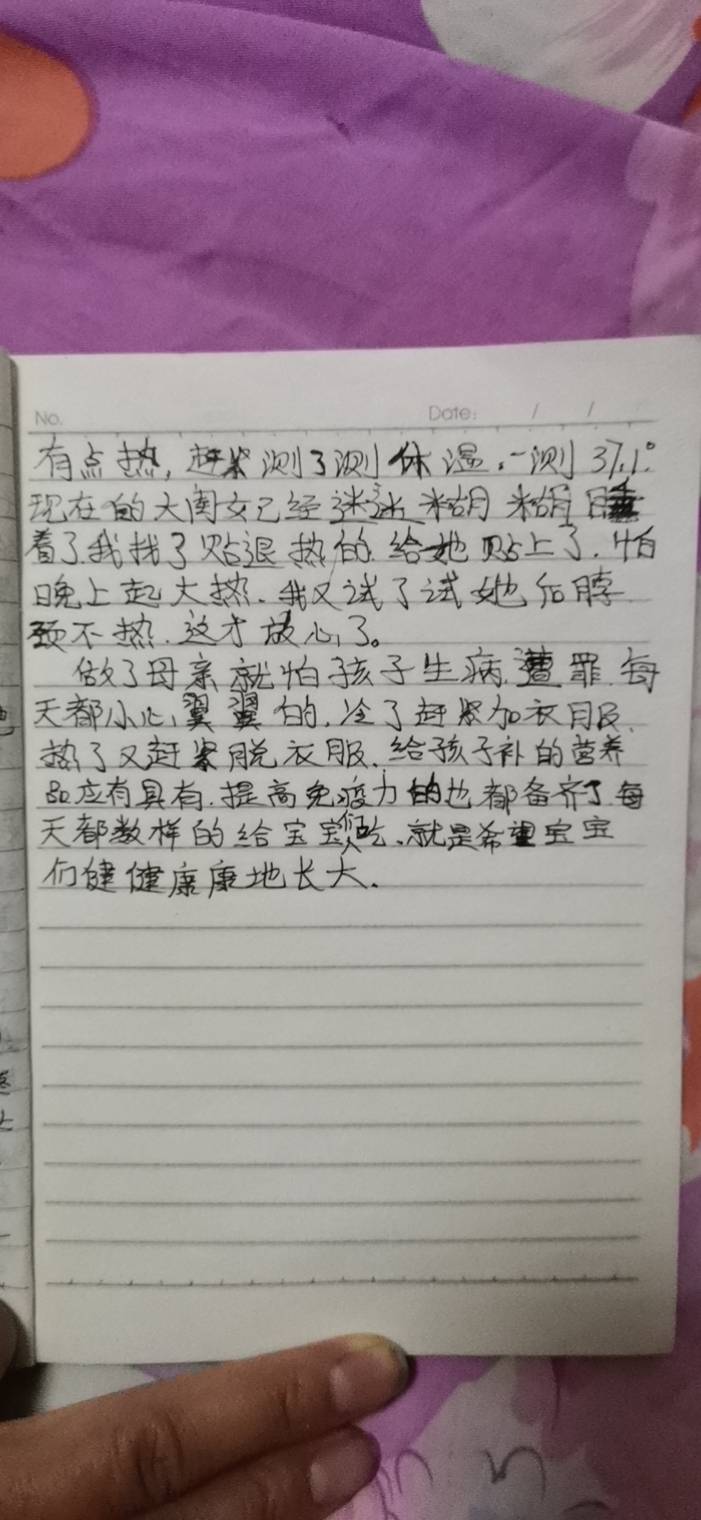 No. Date: / /
有点热,赶紧测了测体温,一测37.1°
现在的大闺女已经迷迷糊糊睡
着了.我找了贴退热的.给她贴上了.怕
晚上起大热.我又试了试她后脖
颈不热.这才放心了。
做了母亲就怕孩子生病.遭罪.每
天都小心翼翼的,冷了赶紧加衣服.
热了又赶紧脱衣服.给孩子补的营养
品应有具有.提高免疫力的也都备齐了.每
天都数样的给宝宝们吃.就是希望宝宝
们健健康康地长大.